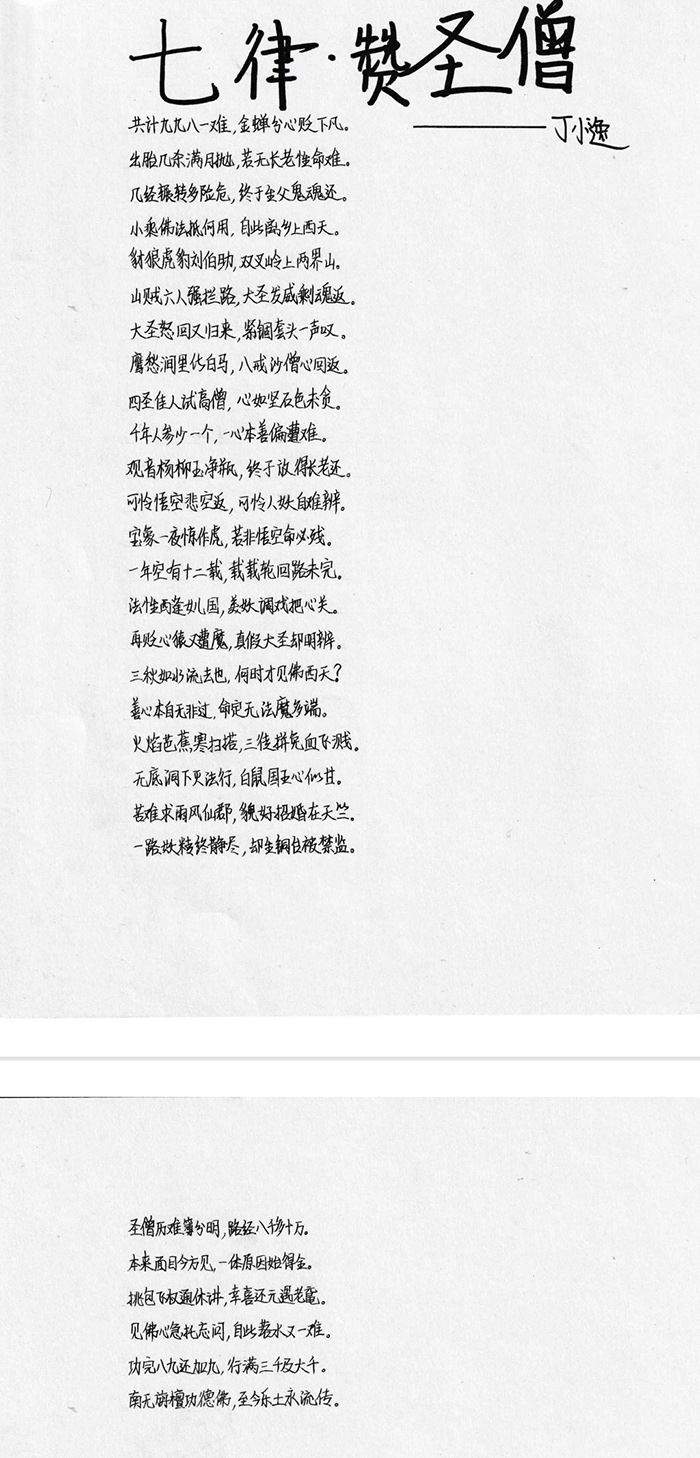 七律·赞圣僧
——丁小逸
共计九九八一难,金蝉分心贬下凡。
出胎几杀满月抛,若无长老性命难。
几经辗转多险危,终于坐父鬼魂还。
小乘佛法抵何用,自此离乡上西天。
豺狼虎豹刘伯助,双叉岭上两界山。
山贼六人强拦路,大圣发威剩魂返。
大圣怒回又归来,紧锢套头一声叹。
鹰愁涧里化白马,八戒沙僧心回返。
四圣佳人试高僧,心如坚石色未贪。
千年人参少一个,一心本善偏遭难。
观音杨柳玉净瓶,终于放得长老还。
可怜悟空悲空返,可怜人妖自难辨。
宝象一夜惊作虎,若非悟空命必残。
一年空有十二载,载载轮回路未完。
法性西逢女儿国,美妖调戏把心关。
再贬心猿又遭魔,真假大圣却明辨。
三秋如水流去也,何时才见佛西天?
善心本自无非过,命定无法魔多端。
火焰芭蕉寒扫塔,三徒拼免血飞溅。
无底洞下灭法行,白鼠国王心似甘。
苦难求雨凤仙郡,貌好招婚在天竺。
一路妖精终静尽,却坐铜台被禁监。
圣僧历难簿分明,路经八千多十万。
本来面目今方见,一体原因始得金。
挑包飞权通休讲,幸喜还元遇老鼋。
见佛心急托志问,自此落水又一难。
功完八九还加九,行满三千及大千。
南无旃檀功德佛,至今乐土永流传。